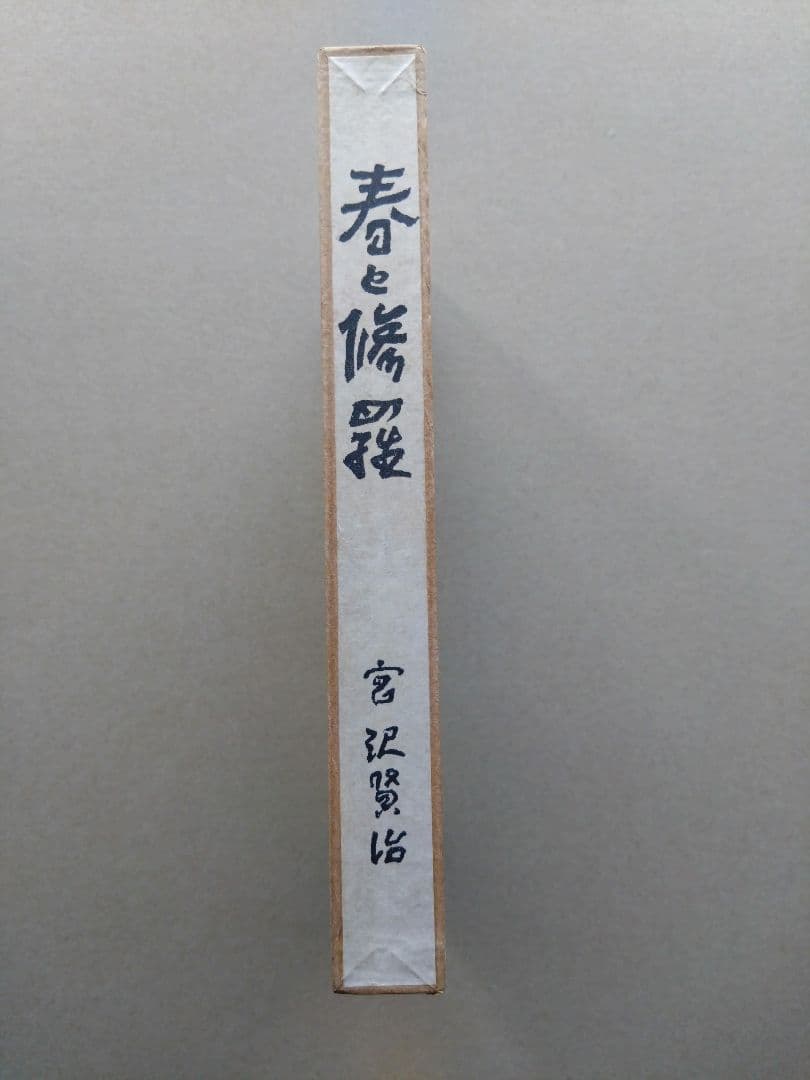 春と修羅
宮沢賢治